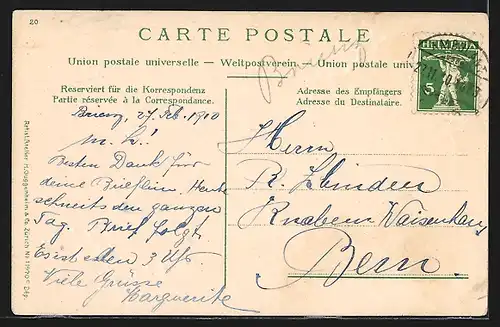 20
CARTE POSTALE
Union postale universelle – Weltpostverein – Union postale univ
Brienz
HELVETIA
5
Reserviert für die Korrespondenz
Partie réservée à la Correspondance.
Adresse des Empfängers
Adresse du Destinataire.
Brienz, 27. Feb. 1910
M. L.!
Besten Dank für
deine Brieflein, Heute
schneits den ganzen
Tag. Brief folgt.
Es ist eben 3 Uhr
Viele Grüsse
Marguerite
Herrn
R. Zbinden
Knaben Waisenhaus
Bern.
H. Guggenheim & Co. Zürich No